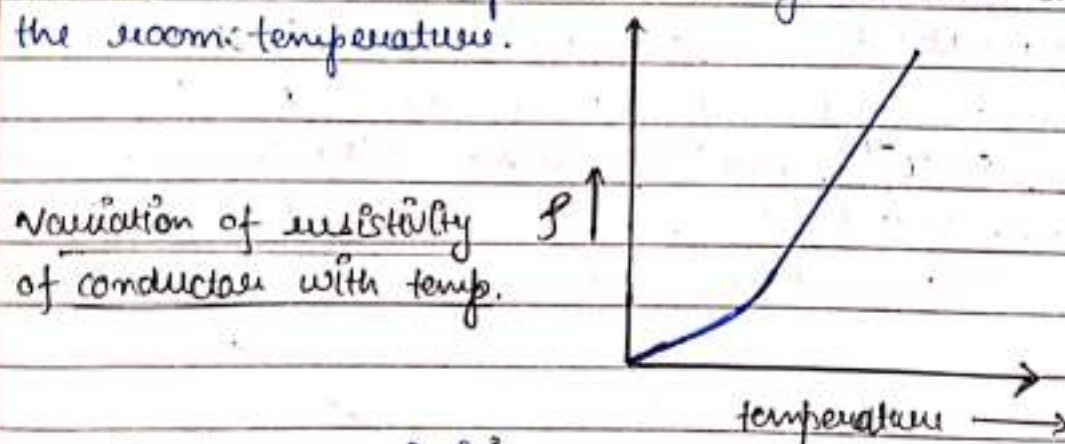 the room temperature.
Variation of resistivity
of conductor with temp.
ρ ↑
temperature →